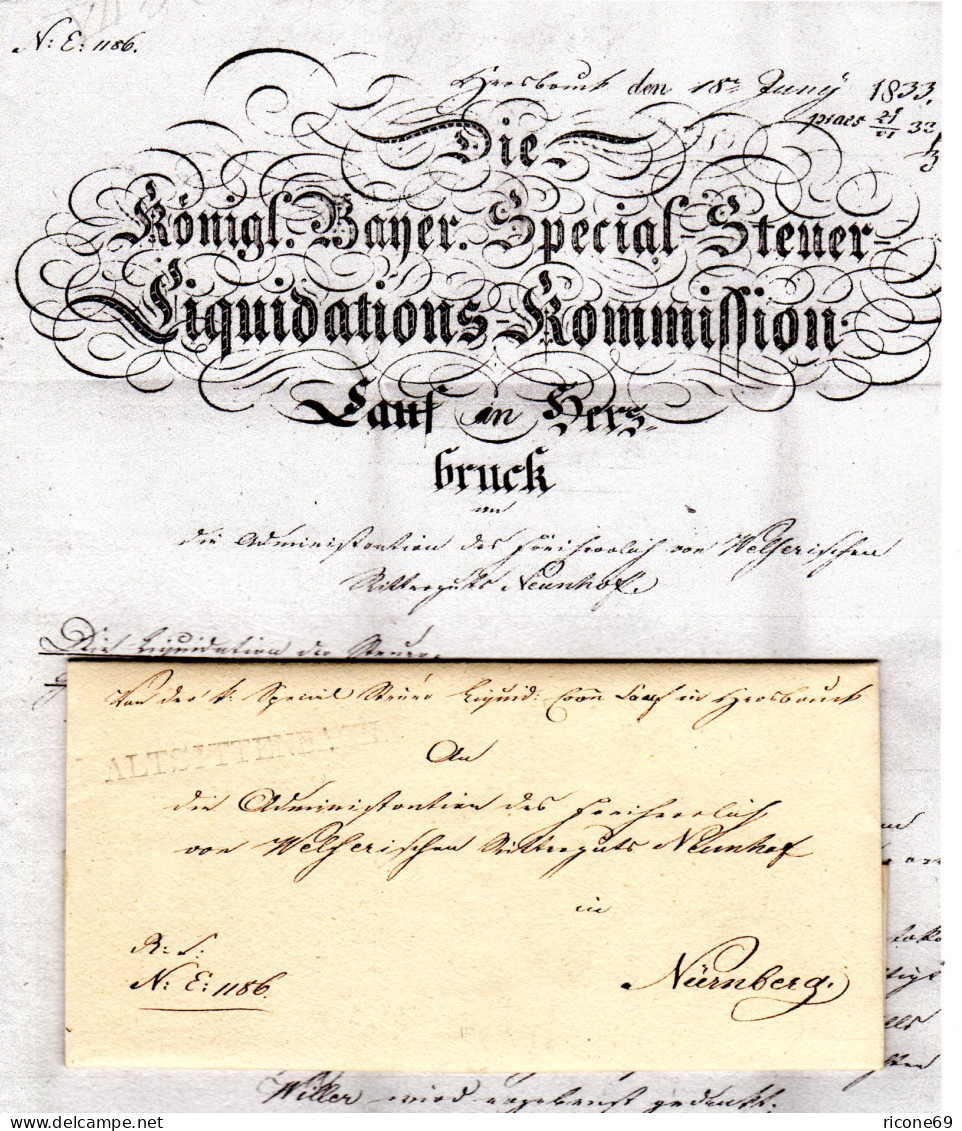 N: E: 1186.
Hersbruck den 18n Juny 1833.
praes 21/VI 33
Die
Königl. Bayer. Special-Steuer-
Liquidations-Kommission
Lauf in Hers-
bruck
an
die Administration des Freiherrlich von Welserischen
Ritterguts Neunhof.
Die Liquidation der Steuer-
Von der k. Special Steuer Liquid: Comn Lauf in Hersbruck
ALTSITTENBACH
An
die Administration des Freiherrlich
von Welserischen Ritterguts Neunhof
in
R: S:
N: E: 1186.
Nürnberg.
Willer wird ergebenst gedankt.
delcampe.net
ricone69